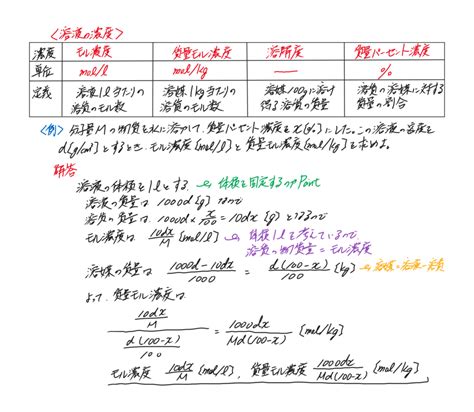 <溶液の濃度>
濃度 モル濃度 質量モル濃度 溶解度 質量パーセント濃度
単位 mol/l mol/kg — %
定義 溶液1l当たりの溶質のモル数 溶媒1kg当たりの溶質のモル数 溶媒100gに溶け得る溶質の質量 溶質の溶液に対する質量の割合
<例> 分子量Mの物質を水に溶かして、質量パーセント濃度をx[%]にした。この溶液の密度を
d[g/cm³]とするとき、モル濃度[mol/l]と質量モル濃度[mol/kg]を求めよ。
解答
溶液の体積を1lとする。 ⇒体積を固定するのがPoint
溶液の質量は 1000d[g]なので
溶質の質量は 1000d×x/100=10dx[g]となるので
モル濃度は 10dx/M[mol/l] ⇒体積1lを考えているので
溶質の物質量=モル濃度
溶媒の質量は (1000d-10dx)/1000 = d(100-x)/100 [kg] ⇒溶媒=溶液-溶質
よって、質量モル濃度は
(10dx/M)/(d(100-x)/100) = 1000dx/Md(100-x) [mol/kg]
モル濃度 10dx/M[mol/l]、質量モル濃度 1000dx/Md(100-x)[mol/kg]